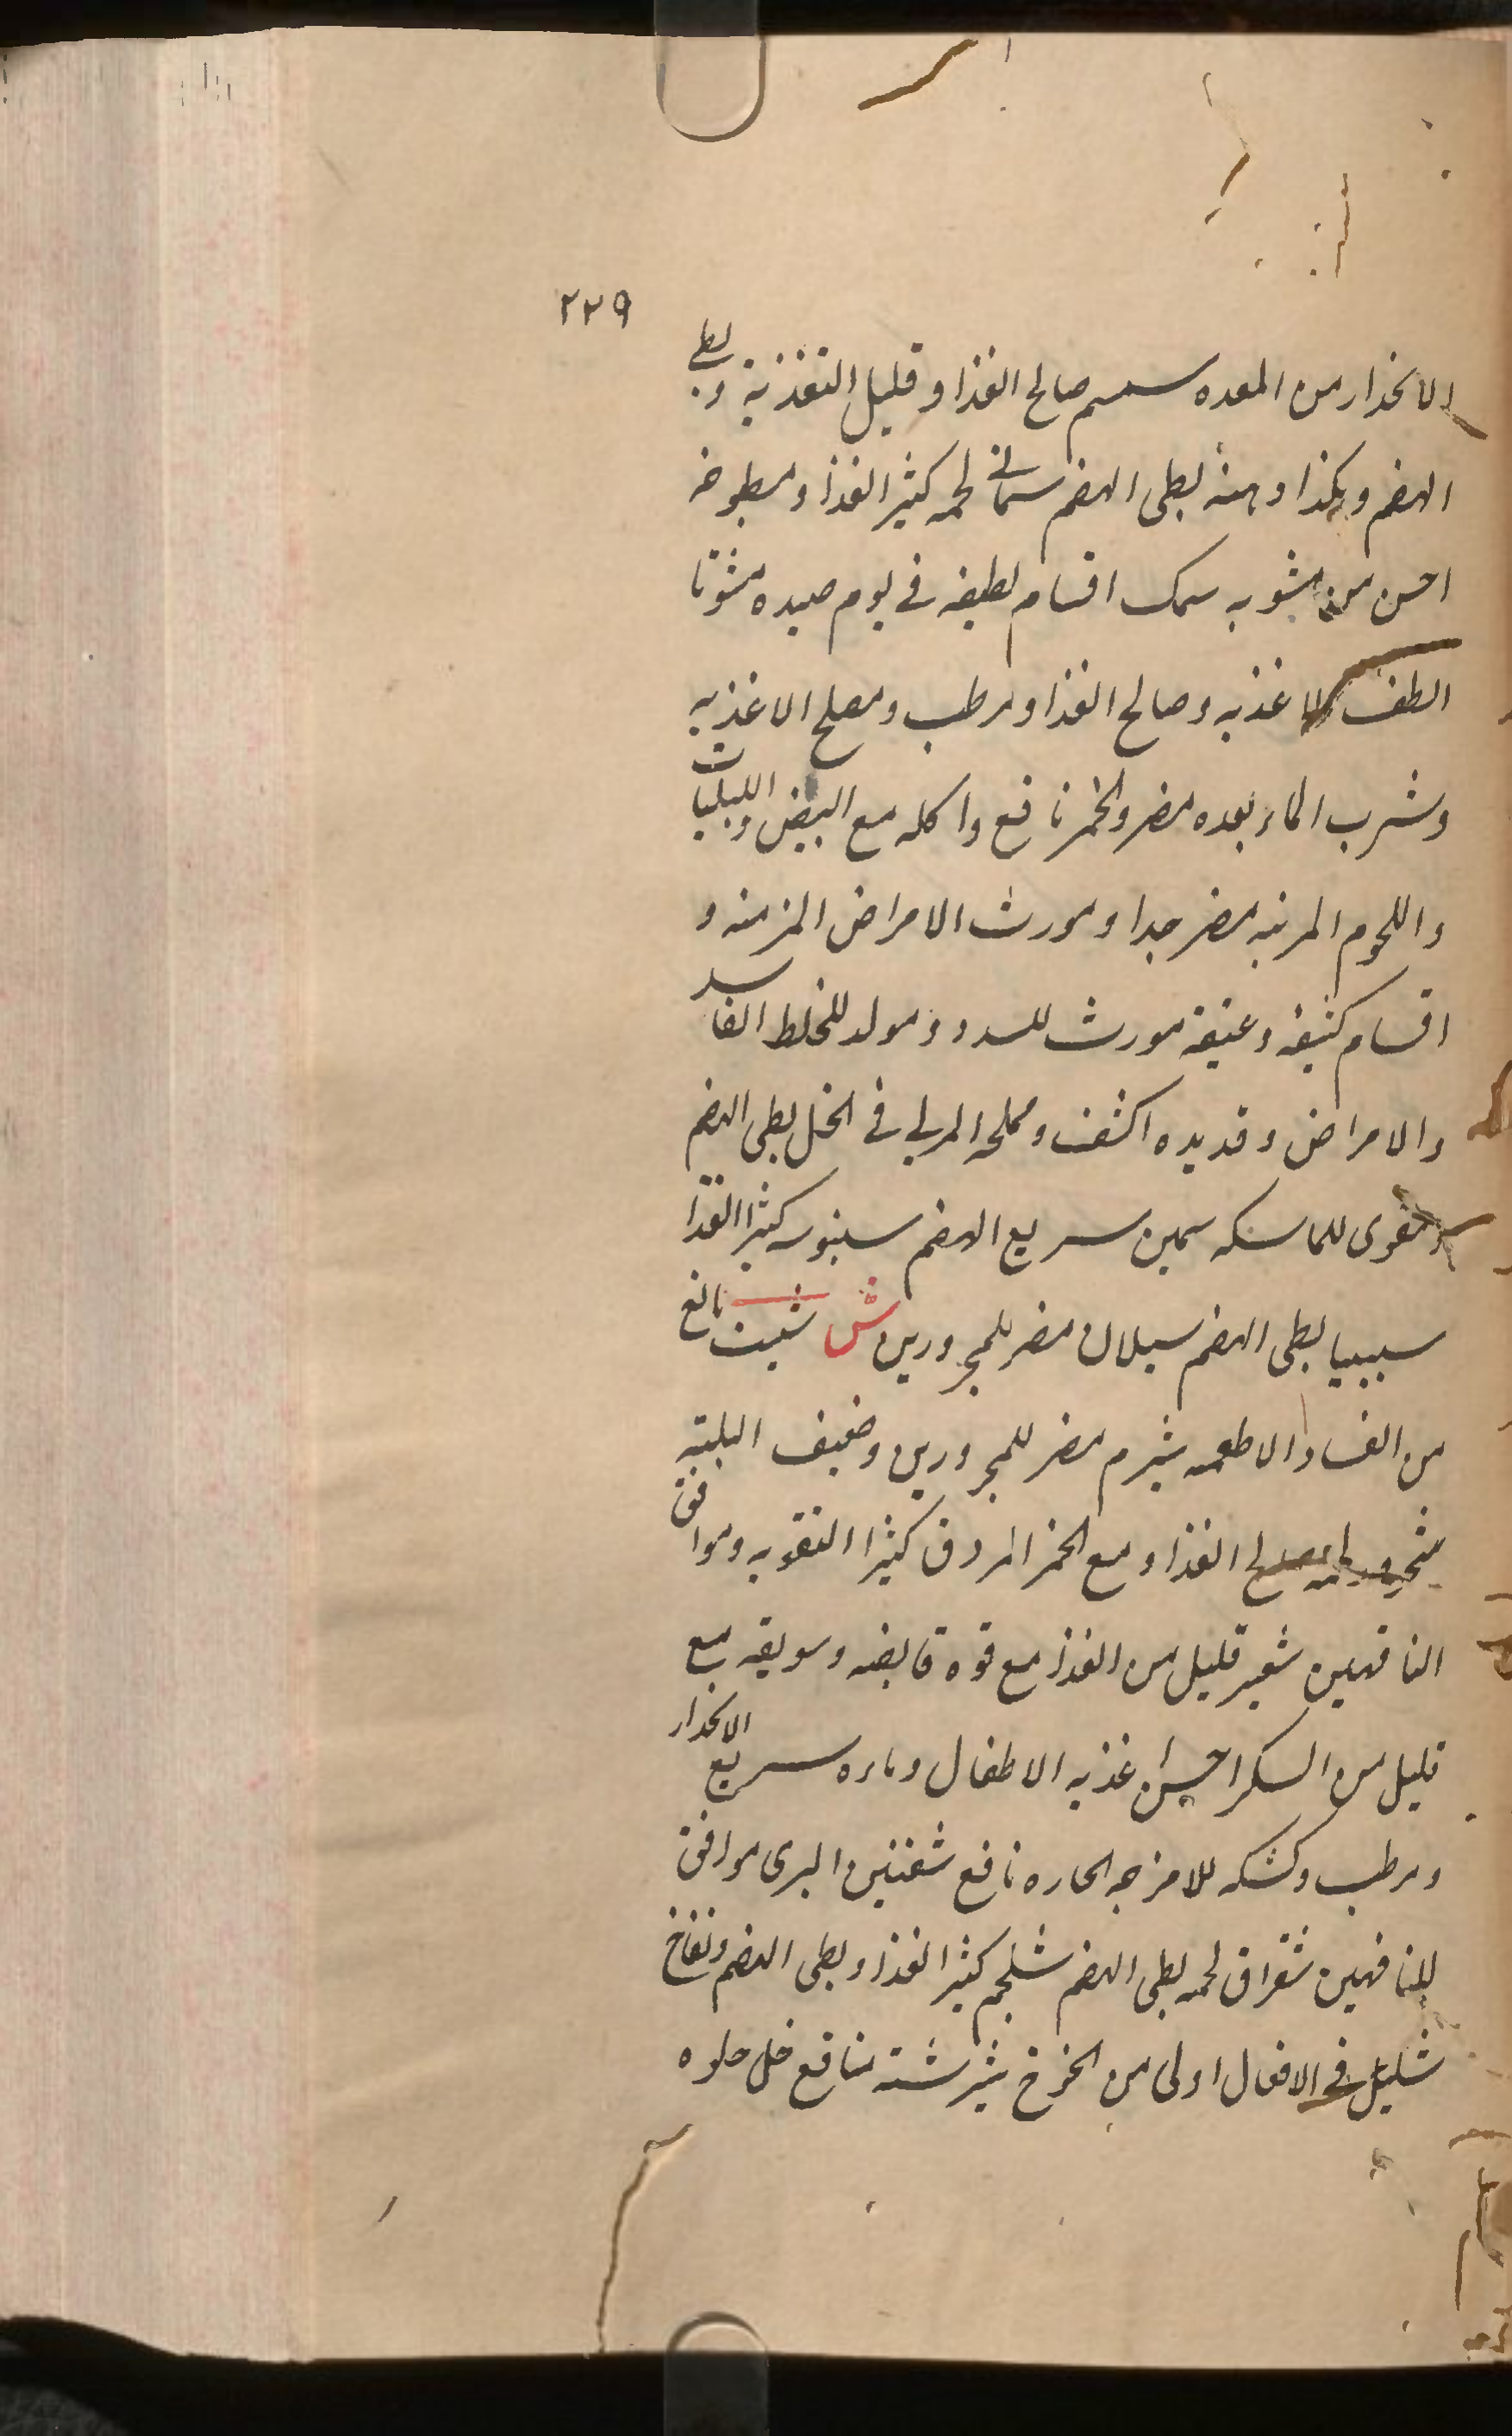 ٢٢٩
الانحدار من المعده سمسم صالح الغذا و قليل التغذية و بطى
الهضم و هكذا دهنه بطى الهضم سمانى لحمه كثير الغذا و مطبوخه
احسن من مشويه سمك اقسام لطيفه فى يوم صيده مشويا
الطف الاغذيه و صالح الغذا و مرطب و مصلح الاغذيه
و شرب الماء بعده مضر و الخمر نافع و اكله مع البيض و اللبنيات
و اللحوم المرتبه مضر جدا و مورث الامراض المزمنه و
اقسام كثيفه و عتيقه مورث للسدد و مولد للخلط الفاسد
و الامراض و قديده اكثف و مملحه المربى فى الخل بطى الهضم
و مقوى للماسكه سمين سريع الهضم سنبوسه كثير الغذا
سيبيا بطى الهضم سيلان مضر للمحرورين ش شبت نافع
من الفساد الاطعمه شبرم مضر للمحرورين و ضعيف البلته
لحمه صالح الغذا و مع الخمر المروق كثير التقويه و موافق
الناقهين شعير قليل من الغذا مع قوة قابضه و سويقه مع
قليل من السكر احسن اغذيه الاطفال و ماءه سريع الانحدار
و مرطب و كشكه للامزجه الحاره نافع شفنين البرى موافق
للناقهين شقراق لحمه بطى الهضم شلجم كثير الغذا و بطى الهضم و نفاخ
شليل فى الافعال اولى من الخوخ شيرخشت منافع خل حلوه